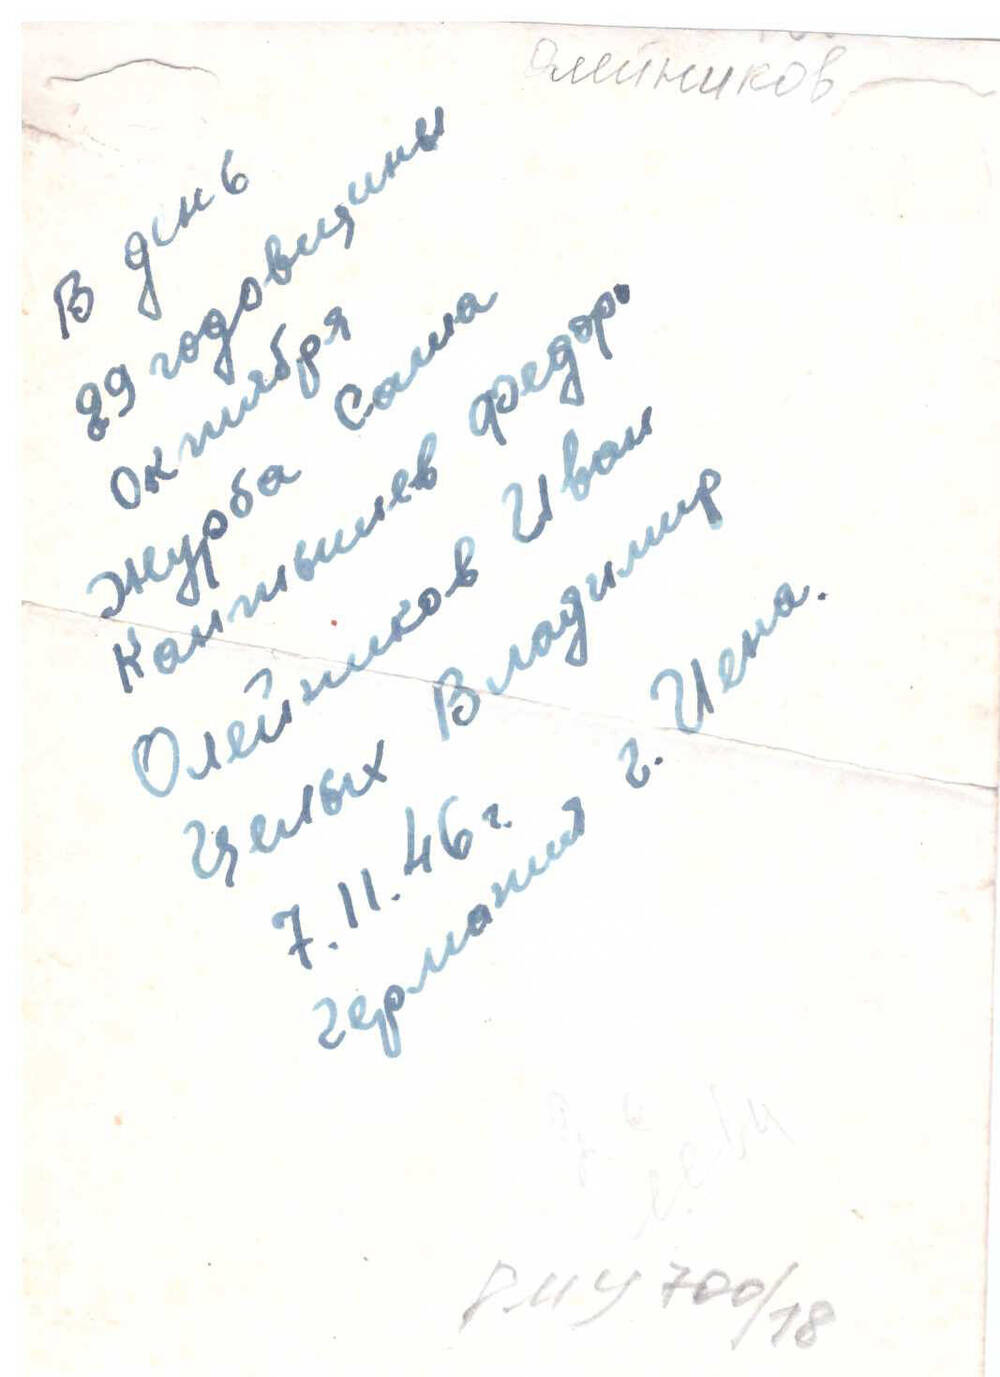 Олейников
В день
29 годовщины
октября
Журба Саша
Контышев Федор.
Олейников Иван
Целых Владимир
7.11.46 г.
Германия г. Иена.
РМУ 700/18